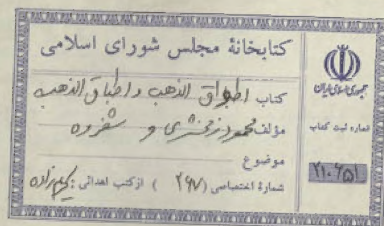 کتابخانهٔ مجلس شورای اسلامی
کتاب اطواق الذهب و اطباق الذهب
مؤلف محمود زمخشری و شفروه
موضوع
شمارهٔ اختصاصی (۲۹۷) از کتب اهدائی:
جمهوری اسلامی ایران
شماره ثبت کتاب